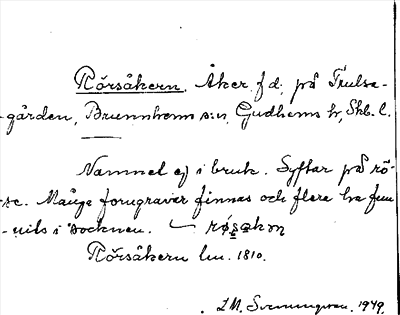 Rörsåkern. Åker, f.d. på Trulsa-
gården, Brunnhems s:n, Gudhems hr, Skb. l.
Namnet ej i bruk. Syftar på rö-
se. Många forngravar finnas och flera ha fun-
nits i socknen.
Rörsåkern lm. 1810.
1949.